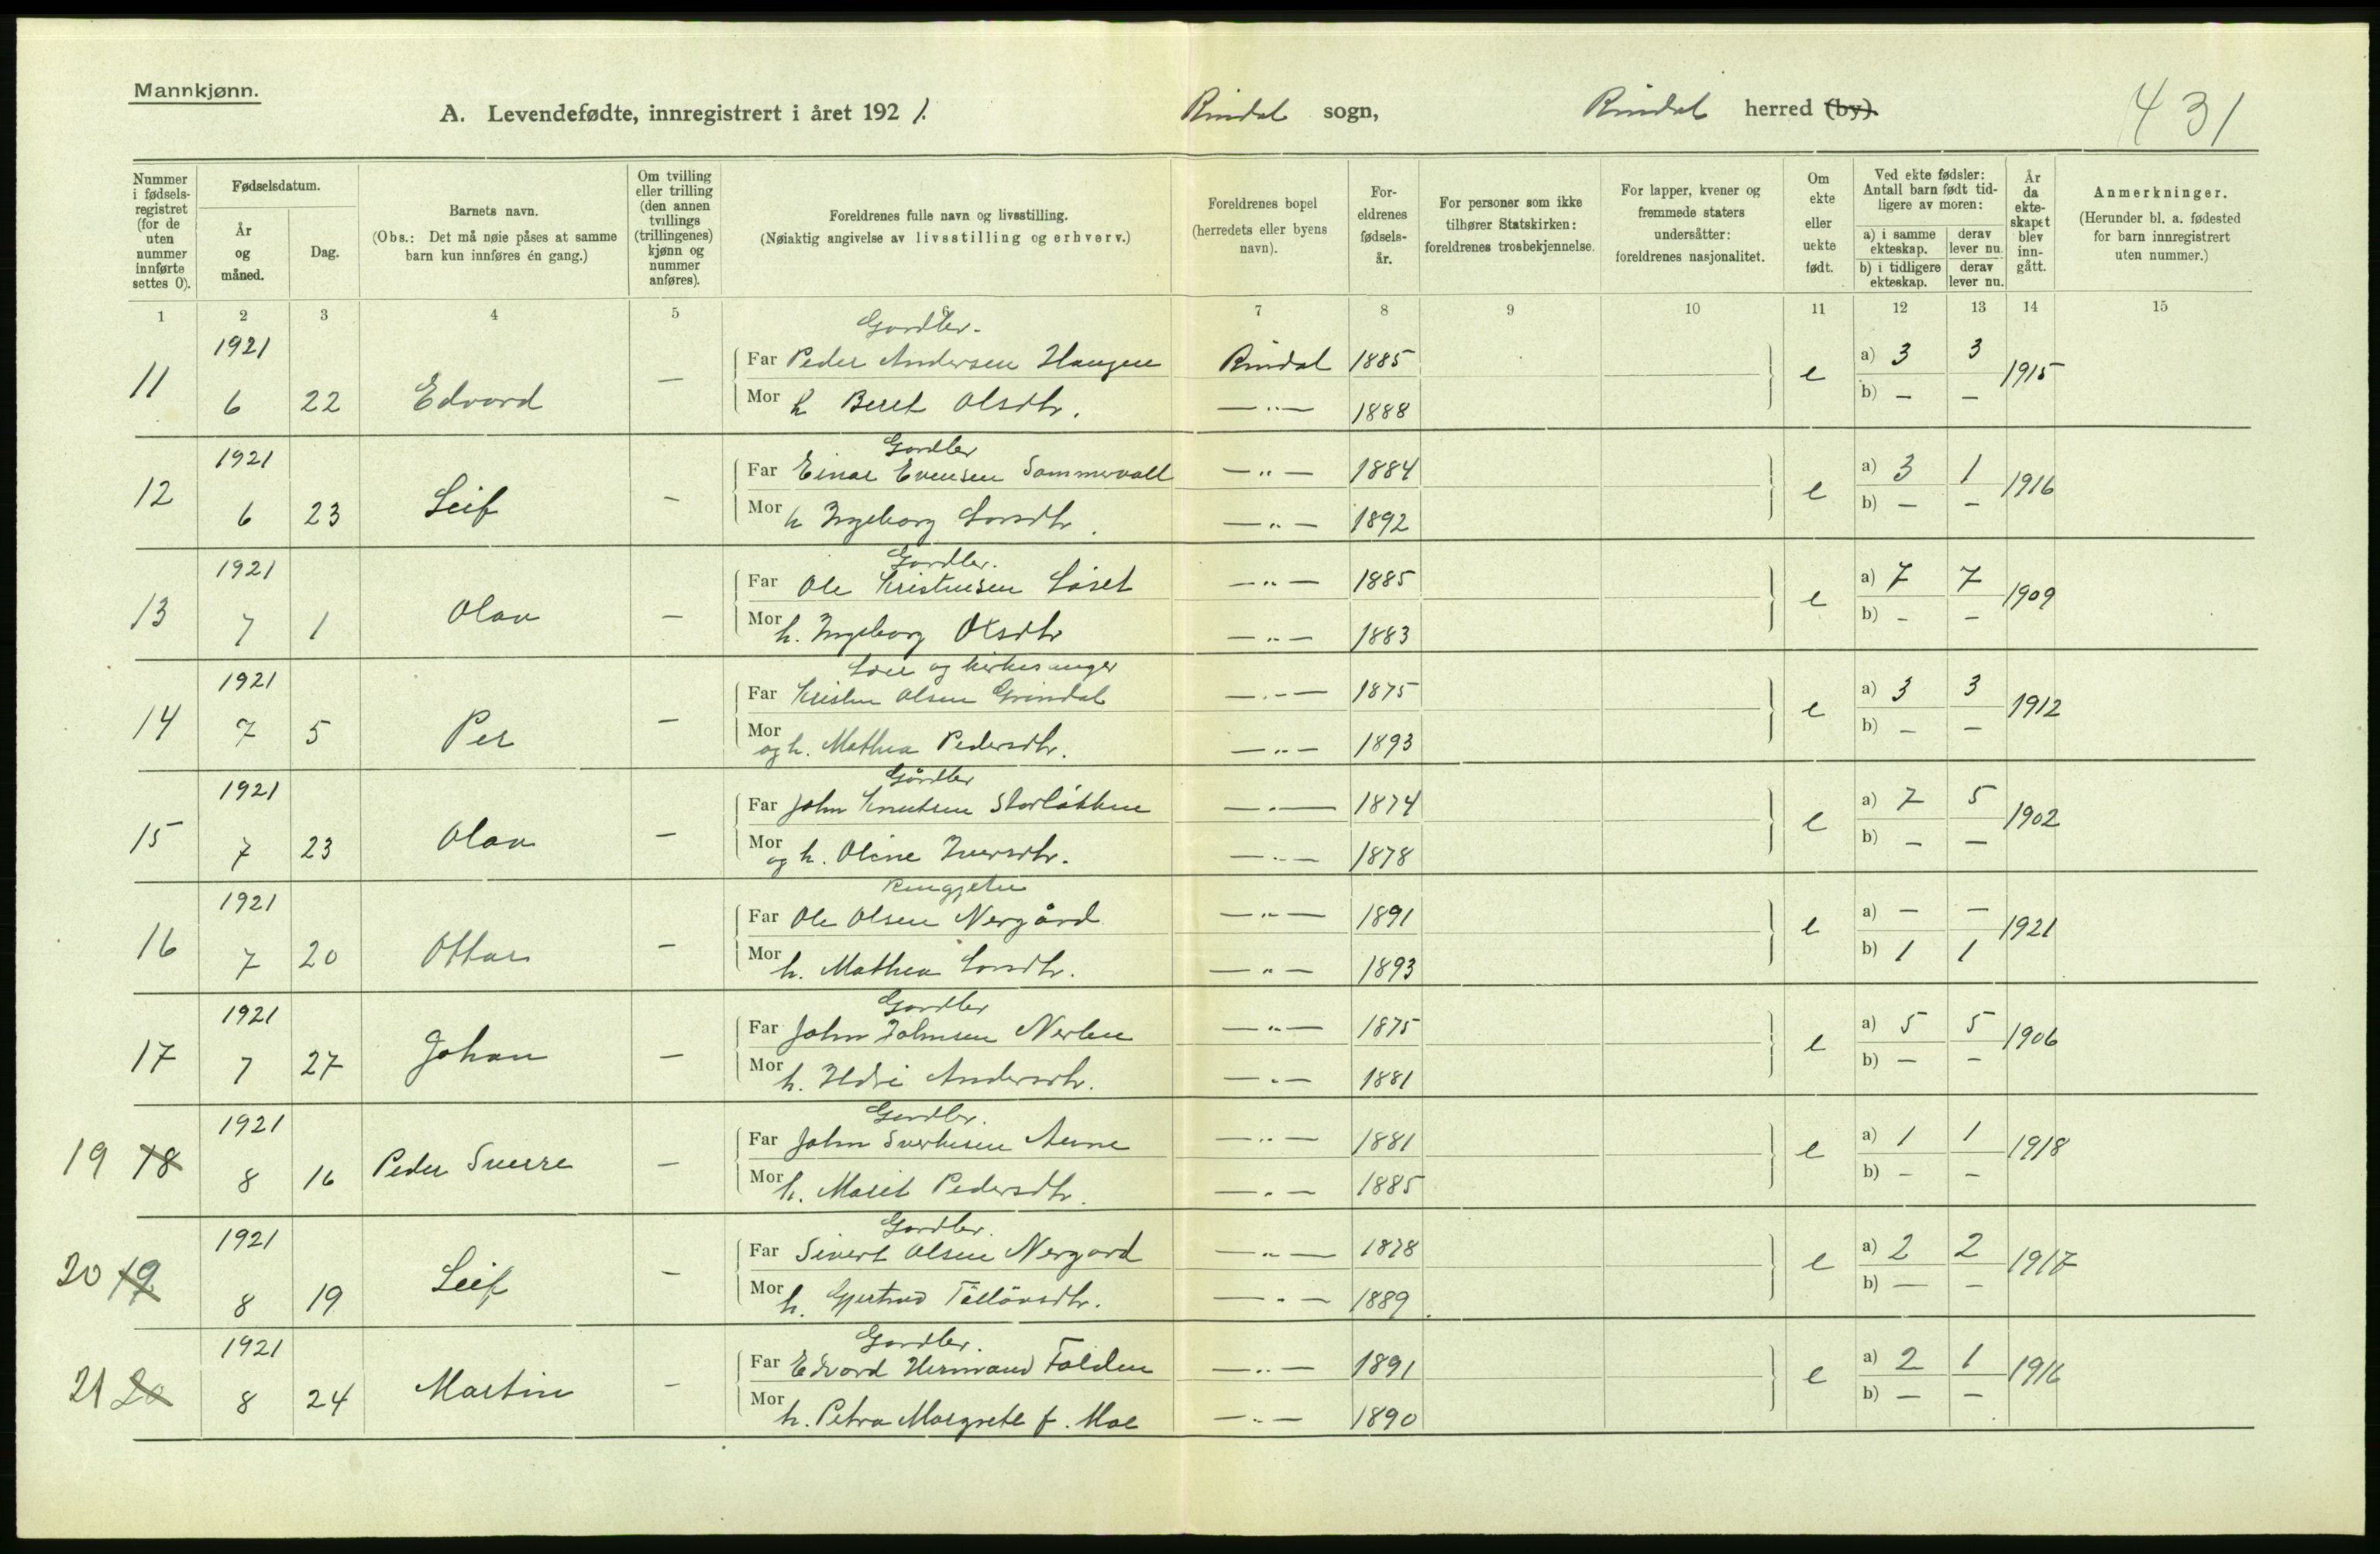 Mannkjønn.
A. Levendefødte, innregistrert i året 1921. Rindal sogn, Rindal herred (by). 431
Nummer i fødselsregistret (for de uten nummer innførte settes 0).
Fødselsdatum.
År og måned.
Dag.
Barnets navn.
(Obs.: Det må nøie påses at samme barn kun innføres én gang.)
Om tvilling eller trilling (den annen tvillings (trillingenes) kjønn og nummer anføres).
Foreldrenes fulle navn og livsstilling.
(Nøiaktig angivelse av livsstilling og erhverv.)
Foreldrenes bopel (herredets eller byens navn).
Foreldrenes fødselsår.
For personer som ikke tilhører Statskirken: foreldrenes trosbekjennelse.
For lapper, kvener og fremmede staters undersåtter: foreldrenes nasjonalitet.
Om ekte eller uekte født.
Ved ekte fødsler: Antall barn født tidligere av moren:
a) i samme ekteskap. derav lever nu.
b) i tidligere ekteskap. derav lever nu.
År da ekteskapet blev inngått.
Anmerkninger.
(Herunder bl. a. fødested for barn innregistrert uten nummer.)
1 2 3 4 5 6 7 8 9 10 11 12 13 14 15
Gardbr.
1921
Far Peder Andersen Haugen Rindal 1885 a) 3 3
11 6 22 Edvard — e 1915
Mor h Beret Olsdtr. —"— 1888 b) — —
Gardbr
1921
Far Einar Evensen Sommervoll —"— 1884 a) 3 1
12 6 23 Leif — e 1916
Mor h Ingeborg Larsdtr. —"— 1892 b) — —
Gardbr.
1921
Far Ole Kristensen Løset —"— 1885 a) 7 7
13 7 1 Olav — e 1909
Mor h. Ingeborg Olsdtr —"— 1883 b) - —
Lær og kirkesanger
1921
Far Kristen Olsen Grindal —"— 1875 a) 3 3
14 7 5 Per — e 1912
Mor og h. Mathea Pedersdtr. —"— 1893 b) — —
Gårdbr
1921
Far John Knutsen Storløkken —"— 1874 a) 7 5
15 7 23 Olav — e 1902
Mor og h. Oline Iversdtr. —"— 1878 b) — —
1921
Far Ole Olsen Nergård —"— 1891 a) — —
16 7 20 Ottar — e 1921
Mor h. Mathea Larsdtr. —"— 1893 b) 1 1
Gardbr
1921
Far John Johnsen Nerlien —"— 1875 a) 5 5
17 7 27 Johan — e 1906
Mor h. Ildri Andersdtr. —"— 1881 b) — —
Gardbr.
1921
Far John Sverkesen Aune —"— 1881 a) 1 1
19 18 8 16 Peder Sverre — e 1918
Mor h. Marit Pedersdtr. —"— 1885 b) — —
Gardbr.
1921
Far Sivert Olsen Nergard —"— 1878 a) 2 2
20 19 8 19 Leif — e 1917
Mor h. Gjertrud Tølløvsdtr. —"— 1889 b) — —
Gardbr.
1921
Far Edvard Hermand Folden —"— 1891 a) 2 1
21 20 8 24 Martin — e 1916
Mor h. Petra Margrete f. Moe —"— 1890 b) — —